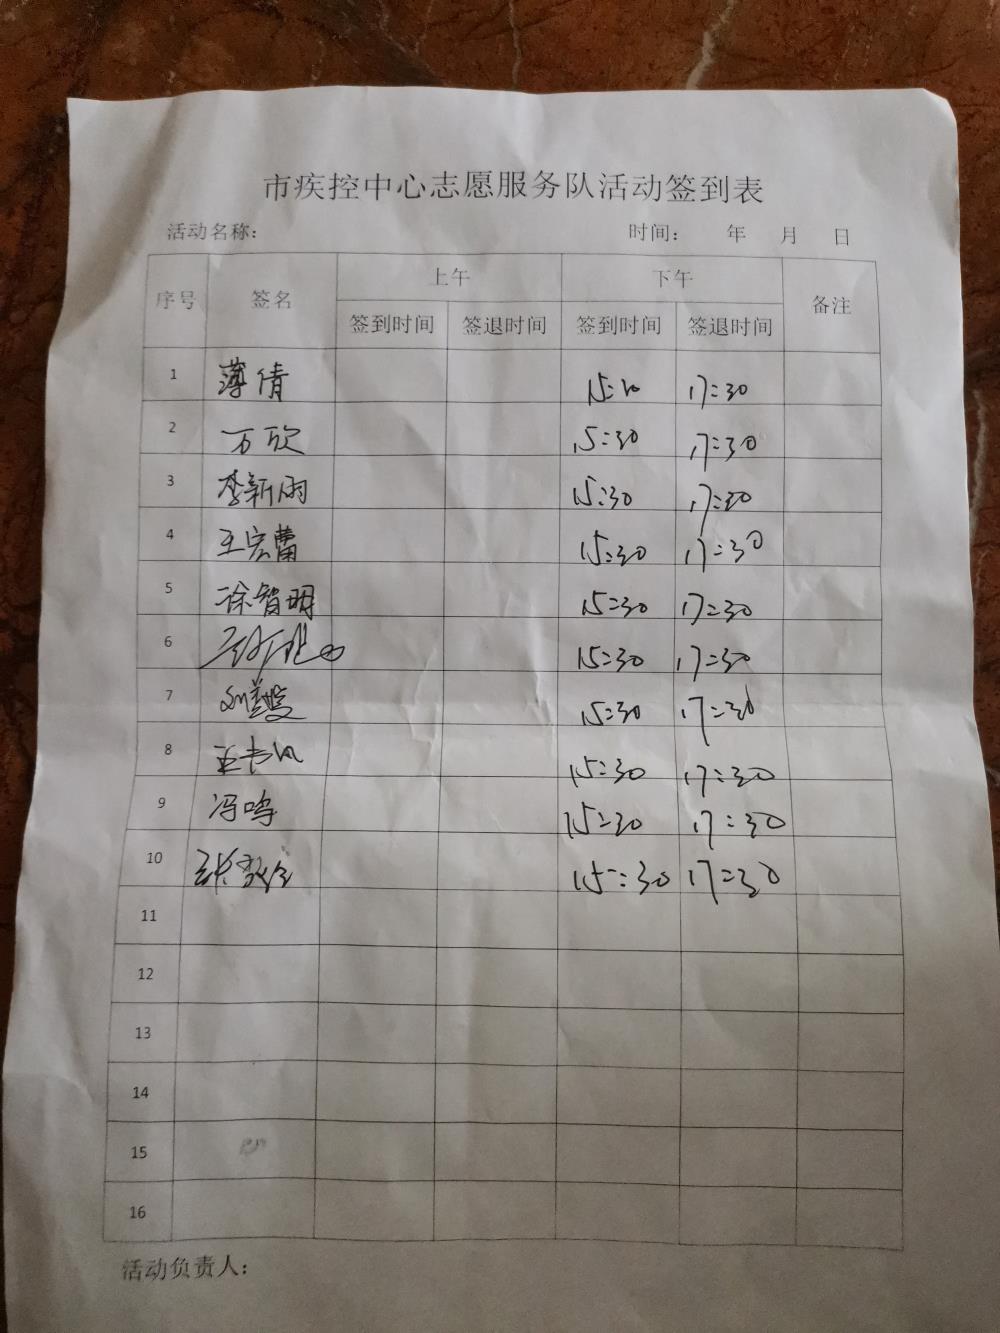 市疾控中心志愿服务队活动签到表
活动名称： 时间： 年 月 日
序号 签名 上午 下午 备注
签到时间 签退时间 签到时间 签退时间
1 薄倩 17:30
2 万欣 15:30 17:30
3 李新雨 15:30 17:30
4 王宏蕾 15:30 17:30
5 徐智明 15:30 17:30
6 15:30 17:30
7 15:30 17:30
8 15:30 17:30
9 15:30 17:30
10 15:30 17:30
11
12
13
14
15
16
活动负责人：